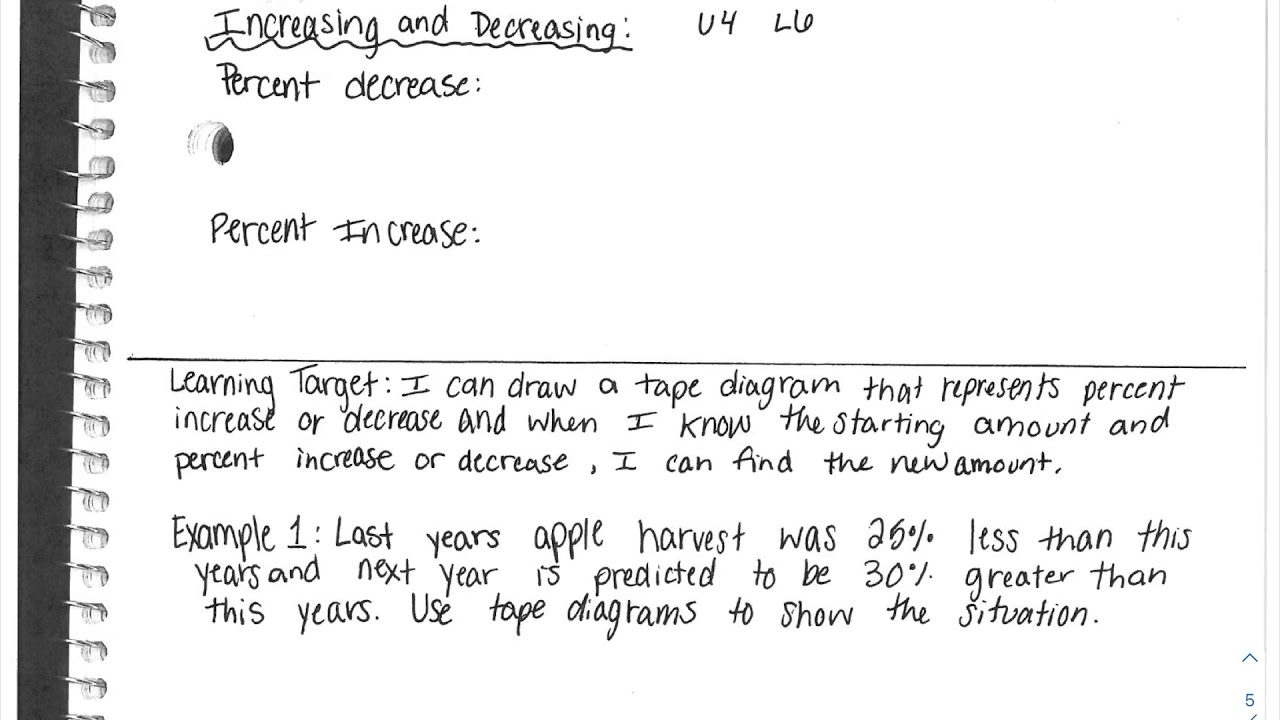 Increasing and Decreasing: U4 L6
Percent decrease:
Percent Increase:
Learning Target: I can draw a tape diagram that represents percent
increase or decrease and when I know the starting amount and
percent increase or decrease, I can find the new amount.
Example 1: Last years apple harvest was 25% less than this
years and next year is predicted to be 30% greater than
this years. Use tape diagrams to show the situation.
5